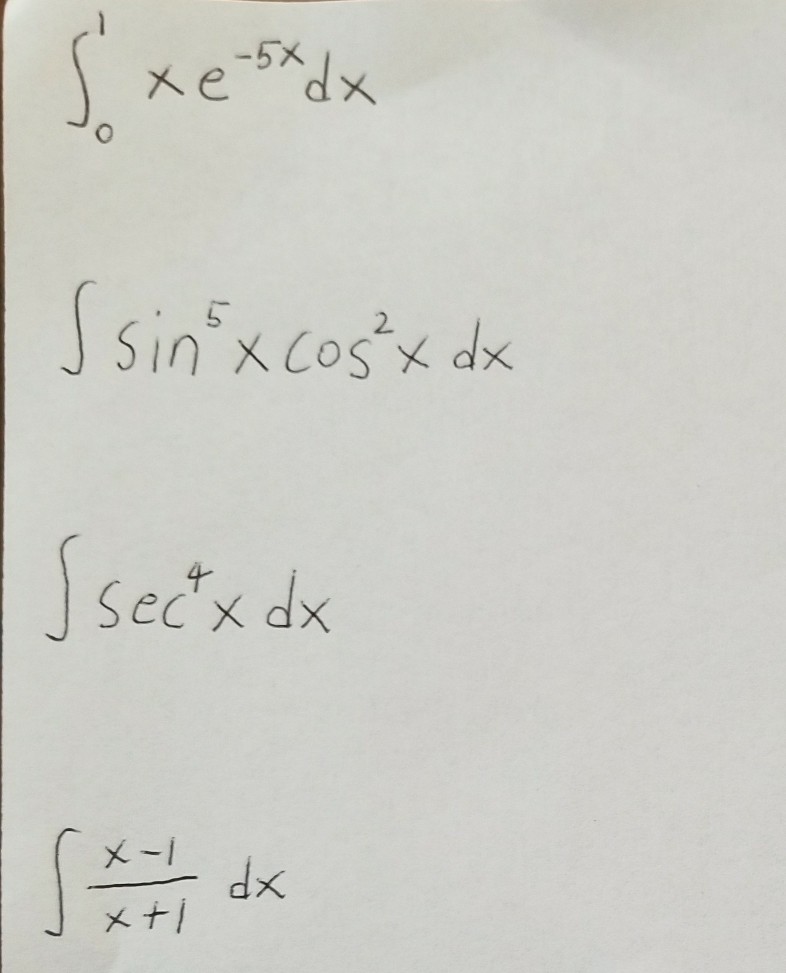 ∫₀¹ xe⁻⁵ˣdx
∫ sin⁵x cos²x dx
∫ sec⁴x dx
∫ (x-1)/(x+1) dx